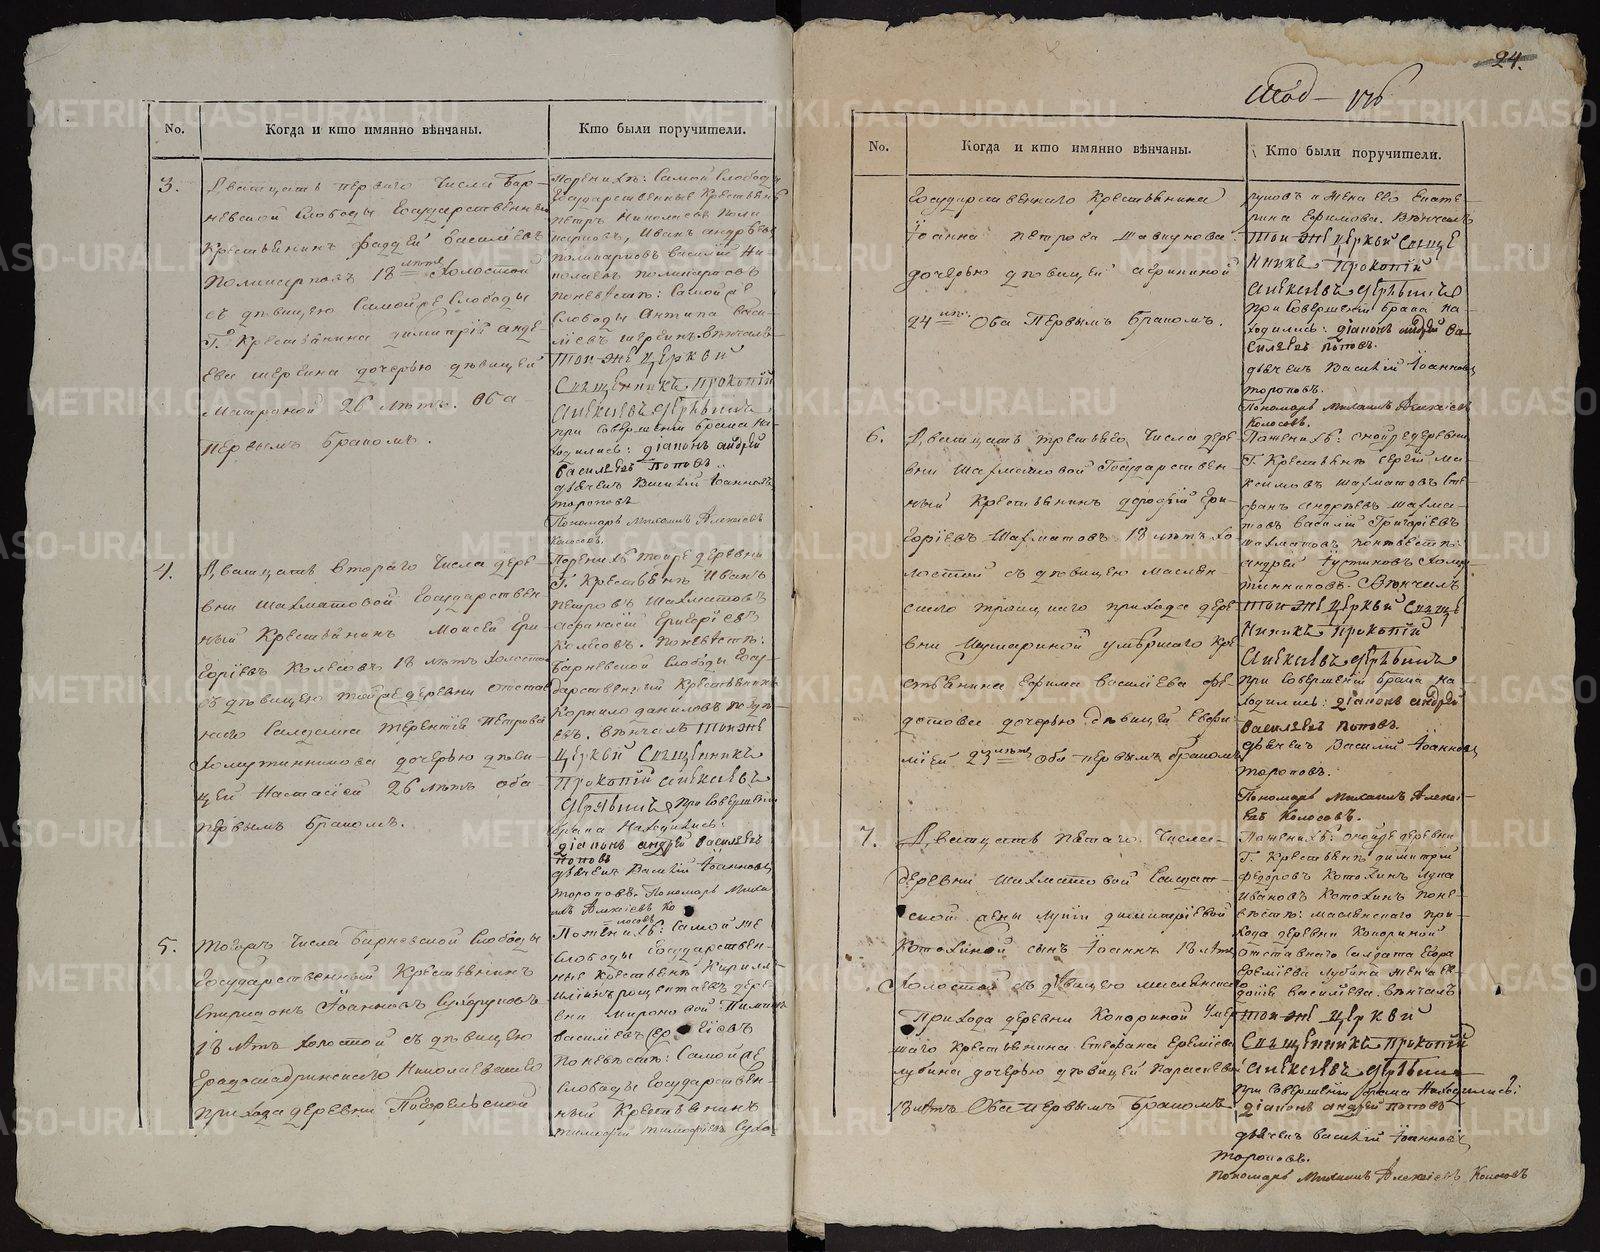 24.
No.
Когда и кто имянно вѣнчаны.
Кто были поручители.
3.
Дватцать перваго числа Бар-
невской Слободы Государственный
Крестьянинъ Фаддей Василіевъ
Поликарповъ 18 лѣтъ Холостой
съ дѣвицею Самой же Слободы
Г. Крестьянина Димитрія Андре
ева дочерью дѣвицей
Матроной 26 лѣтъ. Оба
первымъ бракомъ.
Самой Слободы
Государственные Крестьяне
Петръ Николаевъ Поли
карповъ, Иванъ Андреевъ
Поликарповъ Василій Ни-
колаевъ Поликарповъ
По невѣстѣ: Самой же
Слободы Антипа Васи-
ліевъ Вѣнчалъ
Той же церкви
Священникъ Прокопій
Алексѣевъ
При совершеніи брака на-
ходились: Діаконъ Андрей
Василіевъ Поповъ
дьячекъ Василій Іоанновъ
Тороповъ
Пономарь Михаилъ Алексіевъ
Колосовъ.
4.
Дватцать втораго числа дере-
вни Шахматовой Государствен-
ный Крестьянинъ Моисей Гри-
горіевъ Колѣсовъ 18 лѣтъ холостой
съ дѣвицею той же деревни отстав
наго Салдата Терентія Петрова
дочерью дѣви-
цей Настасіей 26 лѣтъ оба
первымъ бракомъ.
той же деревни
Г. Крестьянѣ Иванъ
Петровъ Шахматовъ
Афанасій Григоріевъ
Колѣсовъ. По невѣстѣ:
Барневской Слободы Госу-
дарственный Крестьянинъ
Корнило Даниловъ
Вѣнчалъ Той же
Церкви Священникъ
Прокопій Алексѣевъ
При совершеніи
брака находились:
Діаконъ Андрей Василіевъ
Поповъ
дьячекъ Василій Іоанновъ
Тороповъ. Пономарь Михаи
лъ Алексіевъ Ко
лосовъ
5.
Тогожъ числа Барневской Слободы
Государственный Крестьянинъ
Спиридонъ Іоанновъ Сухоруковъ
18 лѣтъ холостой съ дѣвицею
Градошадринскаго Николаевскаго
прихода деревни Погорельской
По женихѣ: Самой же
Слободы Государствен-
ные Крестьянѣ Кирилъ
дере
вни Мироновой
Василіевъ
По невѣстѣ: Самой же
Слободы Государствен-
ный Крестьянинъ
Тимофей Тимофѣевъ Сухо-
No.
Когда и кто имянно вѣнчаны.
Кто были поручители.
Государственнаго Крестьянина
Іоанна Петрова
дочерью дѣвицей
24 лѣтъ. Оба Первымъ бракомъ.
руковъ и жена его Екате-
рина Ефимова. Вѣнчалъ
Той же церкви Свяще
нникъ Прокопій
Алексѣевъ
При совершеніи брака на-
ходились: Діаконъ Андрей Ва-
силіевъ Поповъ.
дьячекъ Василій Іоанновъ
Тороповъ.
Пономарь Михаилъ Алексіевъ
Колосовъ.
6.
Дватцать третьяго числа дере-
вни Шахматовой Государствен-
ный Крестьянинъ Дорофей Гри-
горіевъ Шахматовъ 18 лѣтъ хо-
лостой съ дѣвицею Маслян-
скаго Троицкаго прихода дере
вни умершаго Кре
стьянина Ефима Василіева Фе-
дотова дочерью дѣвицей Евфи-
міей 23 лѣтъ Оба первымъ бракомъ
По женихѣ: оной же деревни
Г. Крестьянѣ Сергей Ма-
ксимовъ Шахматовъ Сте-
фанъ Андреевъ Шахма-
товъ Василій Григоріевъ
Шахматовъ По невѣстѣ:
Андрей Іустиновъ
Вѣнчалъ
Той же церкви Свяще
нникъ Прокопій
Алексѣевъ
При совершеніи брака на-
ходились: Діаконъ Андрей
Василіевъ Поповъ.
дьячекъ Василій Іоанновъ
Тороповъ.
Пономарь Михаилъ Алексі-
евъ Колосовъ.
7.
Дватцать пятаго числа
деревни Шахматовой Салдат-
ской жены Димитріевой
Котохиной сынъ Іоаннъ 18 лѣтъ
Холостой съ дѣвицею Маслянскаго
Прихода деревни Копориной Умер
шаго Крестьянина Стефана Еремѣева
Лубина дочерью дѣвицей Параскевой
18 лѣтъ Оба первымъ бракомъ
По женихѣ: оной же деревни
Г. Крестьянѣ Димитрій
Федоровъ Котохинъ Лука
Ивановъ Котохинъ По не-
вѣстѣ: Маслянскаго при-
хода деревни Копориной
отставнаго Салдата Егора
Еремѣева Лубина жена Ев-
докія Василіева. Вѣнчалъ
Той же церкви
Священникъ Прокопій
Алексѣевъ
При совершеніи брака находились:
Діаконъ Андрей Поповъ
дьячекъ Василій Іоанновъ
Тороповъ.
Пономарь Михаилъ Алексіевъ Колосовъ
METRIKI.GASO-URAL.RU